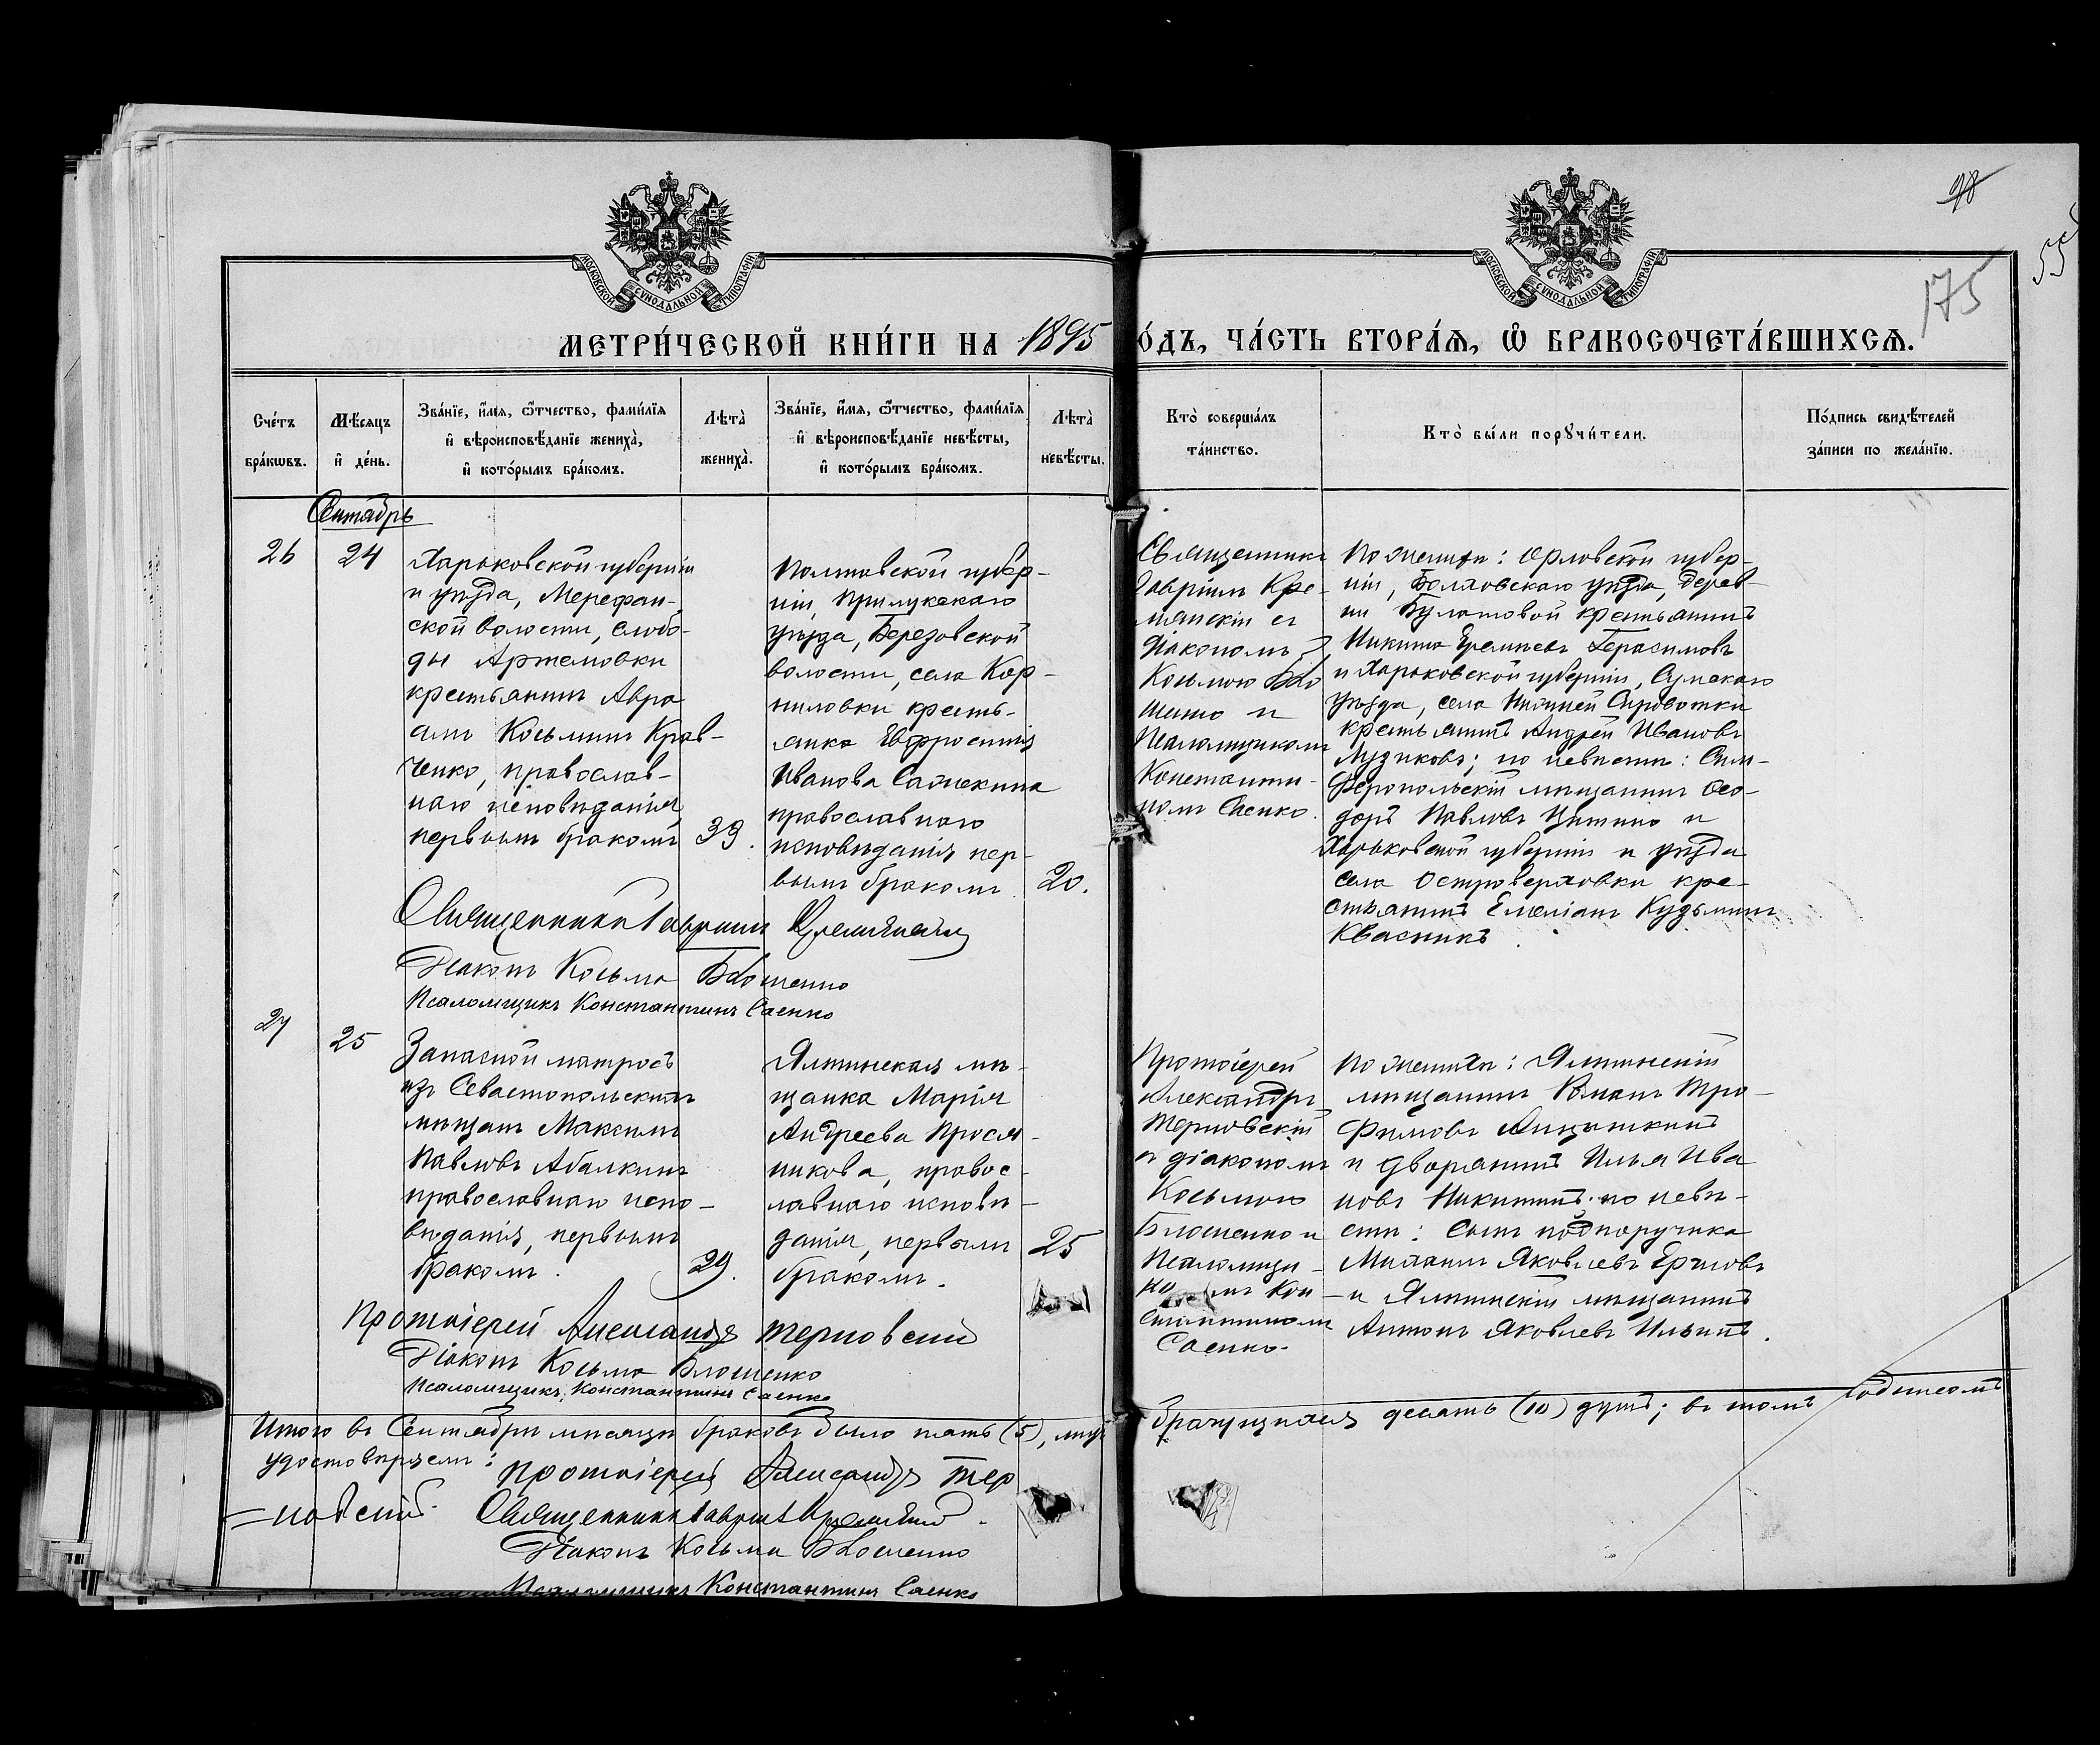 МОСКОВСКОЙ СѴНОДАЛЬНОЙ ТИПОГРАФІИ
МОСКОВСКОЙ СѴНОДАЛЬНОЙ ТИПОГРАФІИ
98
55
175
МЕТРИ́ЧЕСКОЙ КНИ́ГИ НА 1895 ОДЪ, ЧА́СТЬ ВТОРА́Ѧ, Ѡ҆ БРАКОСОЧЕТА́ВШИХСѦ.
Сче́тъ
бра́кѡвъ.
Мѣ́сѧцъ
и҆ де́нь.
Зва́нїе, и҆́мѧ, ѻ҆́тчество, фами́лїѧ
и҆ вѣроисповѣ́данїе жениха̀,
и҆ кото́рымъ бра́комъ.
Лѣта̀
жениха̀.
Зва́нїе, и҆́мѧ, ѻ҆́тчество, фами́лїѧ
и҆ вѣроисповѣ́данїе невѣ́сты,
и҆ кото́рымъ бра́комъ.
Лѣта̀
невѣ́сты.
Кто̀ соверша́лъ
та́инство.
Кто̀ бы́ли порꙋчи́тели.
По́дпись свидѣ́телей
за́писи по жела́нїю.
Сентябрь
26
24
Харьковской губерніи
и уѣзда, Мерефян-
ской волости, слобо-
ды Артемовки
крестьянинъ Авра
амъ Косьминъ Крав-
ченко, православ-
наго исповѣданія
первымъ бракомъ
39.
Полтавской губер-
ніи Прилукскаго
уѣзда, Березовской
волости, села Кор-
ниловки кресть-
янка Евфросинія
Иванова
православнаго
исповѣданія пер-
вымъ бракомъ
20.
Священникъ
Гавріилъ Кре-
мянскій съ
діакономъ
Косьмою Бло
шенко и
Псаломщикомъ
Константи-
номъ Саенко.
По женихѣ: Орловской губер-
ніи, Болховскаго уѣзда, дерев-
ни Булатовой крестьянинъ
Никита Еремѣевъ Герасимовъ
и Харьковской губерніи, Сумскаго
уѣзда, села Нижней Сыроватки
крестьянинъ Андрей Ивановъ
Музыковъ; по невѣстѣ: Сим-
феропольскій мѣщанинъ Ѳео-
доръ Павловъ и
Харьковской губерніи и уѣзда
села Островерховки кре-
стьянинъ Емеліанъ Кузьминъ
Квасникъ.
Священникъ Гавріилъ Кремянскій
Діаконъ Косьма Блошенко
Псаломщикъ Константинъ Саенко
27
25
Запасной матросъ
изъ Севастопольскихъ
мѣщанъ Максимъ
Павловъ Абалкинъ
православнаго испо-
вѣданія, первымъ
бракомъ.
29.
Ялтинская мѣ-
щанка Марія
Андреева Прося-
никова, правос-
лавнаго исповѣ-
данія, первымъ
бракомъ.
25
Протоіерей
Александръ
Терновскій
съ діакономъ
Косьмою
Блошенко и
Псаломщи-
комъ Кон-
стантиномъ
Саенко.
По женихѣ: Ялтинскій
мѣщанинъ Романъ Тро-
фимовъ
и дворянинъ Илья Ива
новъ Никитинъ; по невѣ-
стѣ: сынъ подпоручика
Михаилъ Яковлевъ Ерчовъ
и Ялтинскій мѣщанинъ
Антонъ Яковлевъ Ильинъ.
Протоіерей Александръ Терновскій
Діаконъ Косьма Блошенко
Псаломщикъ Константинъ Саенко
Итого въ Сентябрѣ мѣсяцѣ браковъ было пять (5), лицъ брачущихся десять (10) душъ; въ томъ подписомъ
удостовѣряемъ:
Протоіерей Александръ Тер
=новскій. Священникъ Гавріилъ Кремянскій.
Діаконъ Косьма Блошенко
Псаломщикъ Константинъ Саенко